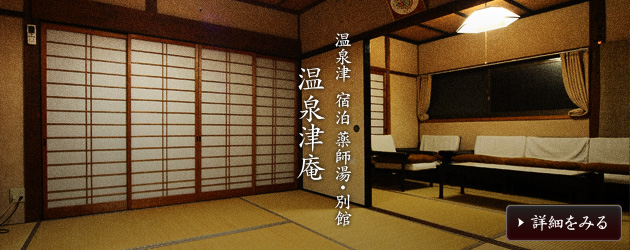 温泉津 宿泊 薬師湯・別館
温泉津庵
詳細をみる